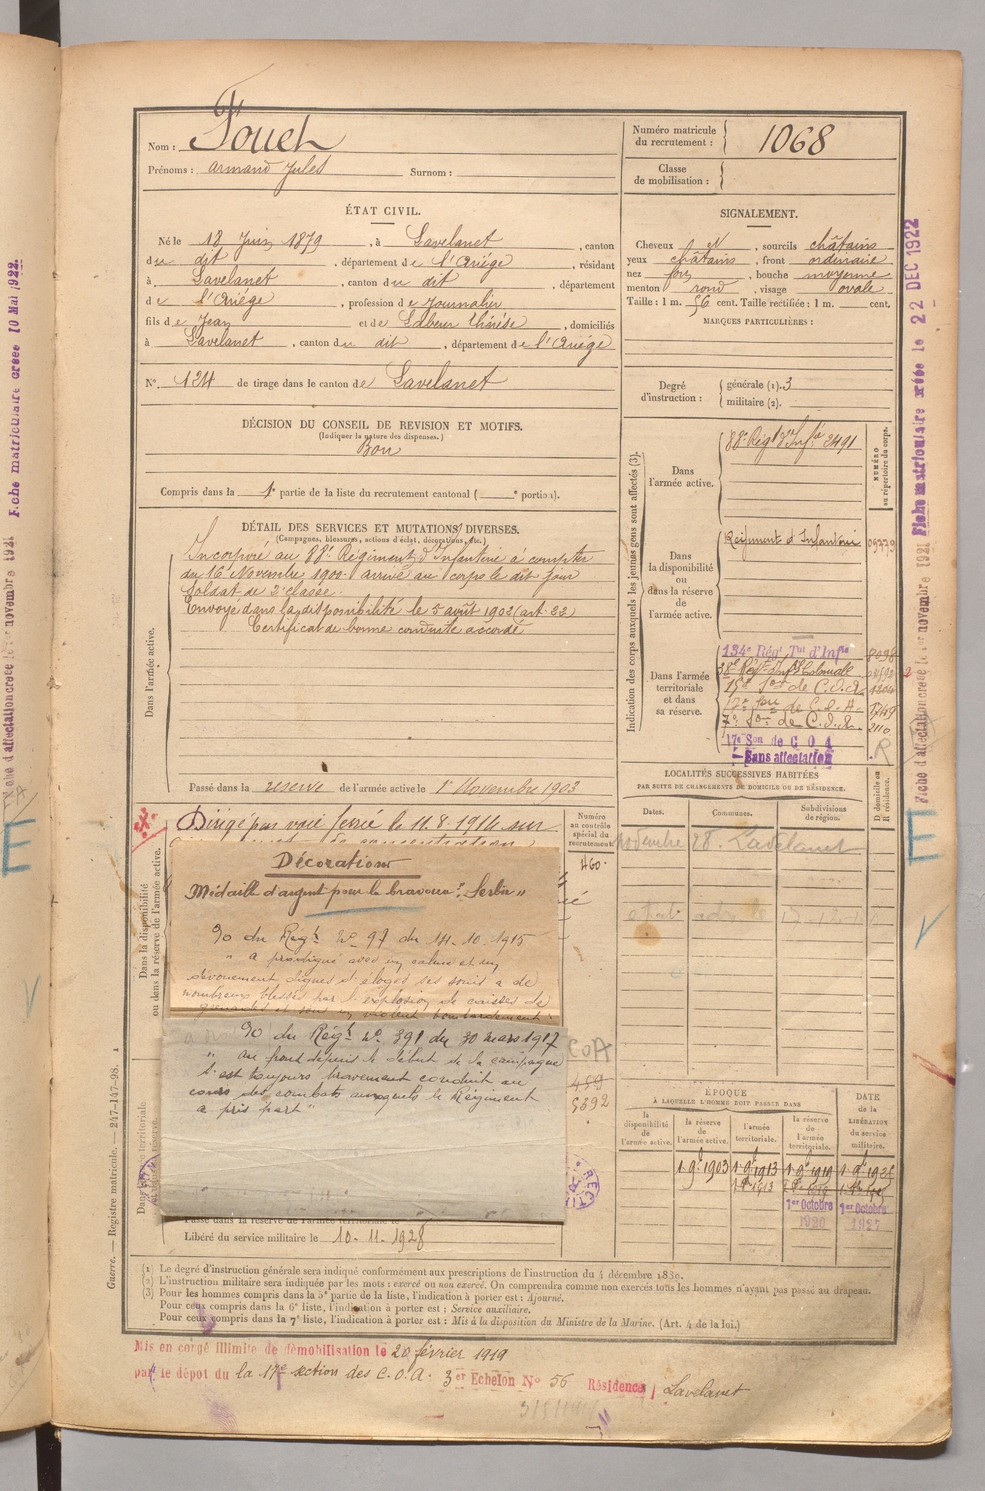 Nom : Fouet
Prénoms : armand Jules Surnom :
Numéro matricule du recrutement : 1068
Classe de mobilisation :
ÉTAT CIVIL.
Né le 18 Juin 1879, à Lavelanet, canton
du dit, département de l'Ariège, résidant
à Lavelanet, canton du dit, département
de l'Ariège, profession de Journalier
fils de Jean et de Thérèse, domiciliés
à Lavelanet, canton du dit, département de l'Ariège
N°. 124 de tirage dans le canton de Lavelanet
SIGNALEMENT.
Cheveux, sourcils châtains
yeux châtains, front ordinaire
nez fort, bouche moyenne
menton rond, visage ovale
Taille : 1 m. 56 cent. Taille rectifiée : 1 m. cent.
MARQUES PARTICULIÈRES :
Degré d'instruction : générale (1). 3
militaire (2).
DÉCISION DU CONSEIL DE REVISION ET MOTIFS.
(Indiquer la nature des dispenses.)
Bon
Compris dans la 1e partie de la liste du recrutement cantonal ( e portion).
DÉTAIL DES SERVICES ET MUTATIONS DIVERSES.
(Campagnes, blessures, actions d'éclat, décorations, etc.)
Dans l'armée active.
Incorporé au 88e Régiment d'Infanterie à compter
du 16 Novembre 1900 arrivé au corps le dit jour
Soldat de 2e classe.
Envoyé dans la disponibilité le 5 août 1902 (art. 22)
Certificat de bonne conduite accordé
Passé dans la reserve de l'armée active le 1er Novembre 1903
Indication des corps auxquels les jeunes gens sont affectés (3).
NUMÉRO au répertoire du corps.
Dans l'armée active.
88e Régt d'Infie 2491
Dans la disponibilité ou dans la réserve de l'armée active.
Régiment d'Infanterie
Dans l'armée territoriale et dans sa réserve.
134e Régt Tal d'Infie
38e Régt Infie Coloniale
de C.O.A.
de C.O.A. 1749
de C.O.A. 2110
17e Son de C O A
Sans affectation R
LOCALITÉS SUCCESSIVES HABITÉES
PAR SUITE DE CHANGEMENTS DE DOMICILE OU DE RÉSIDENCE.
D domicile ou R résidence.
Dates. Communes. Subdivisions de région.
Lavelanet
Dans la disponibilité ou dans la réserve de l'armée active.
Dirigé par voie ferrée le 11.8.1914 sur
Numéro au contrôle spécial du recrutement
460.
Décorations
Médaille d'argent pour la bravoure "Serbie"
90 du Régt No 97 du 14.10.1915
" a prodigué avec un calme et un
dévouement dignes d'éloges ses soins a de
nombreux blessés par l'explosion de caisses de
grenades et sous un violent bombardement"
90 du Régt No 391 du 30 mars 1917
" au front depuis le début de la campagne
s'est toujours bravement conduit au
cours des combats auxquels le Régiment
a pris part"
COA
459
5892
ÉPOQUE
À LAQUELLE L'HOMME DOIT PASSER DANS
la disponibilité de l'armée active.
la réserve de l'armée active.
l'armée territoriale.
la réserve de l'armée territoriale.
DATE de la LIBÉRATION du service militaire.
1 9e 1903 1 9e 1913 1 9e 1919
1er Octobre 1920
1er Octobre 1927
Passé dans la réserve de l'armée territoriale le
Libéré du service militaire le 10-11-1928
(1) Le degré d'instruction générale sera indiqué conformément aux prescriptions de l'instruction du 4 décembre 1889.
(2) L'instruction militaire sera indiquée par les mots : exercé ou non exercé. On comprendra comme non exercés tous les hommes n'ayant pas passé au drapeau.
(3) Pour les hommes compris dans la 5e partie de la liste, l'indication à porter est : Ajourné.
Pour ceux compris dans la 6e liste, l'indication à porter est : Service auxiliaire.
Pour ceux compris dans la 7e liste, l'indication à porter est : Mis à la disposition du Ministre de la Marine. (Art. 4 de la loi.)
Mis en congé illimité de démobilisation le 20 février 1919
par le dépôt du la 17e section des C.O.A. 3er Echelon No 56 Résidence Lavelanet
Guerre. — Registre matricule. — 247-147-98.
Fiche matriculaire créée 10 Mai 1922.
Fiche d'affectation créée le 1er novembre 1921
Fiche matriculaire créée le 22 DEC 1922
Fiche d'affectation créée le 1er novembre 1921